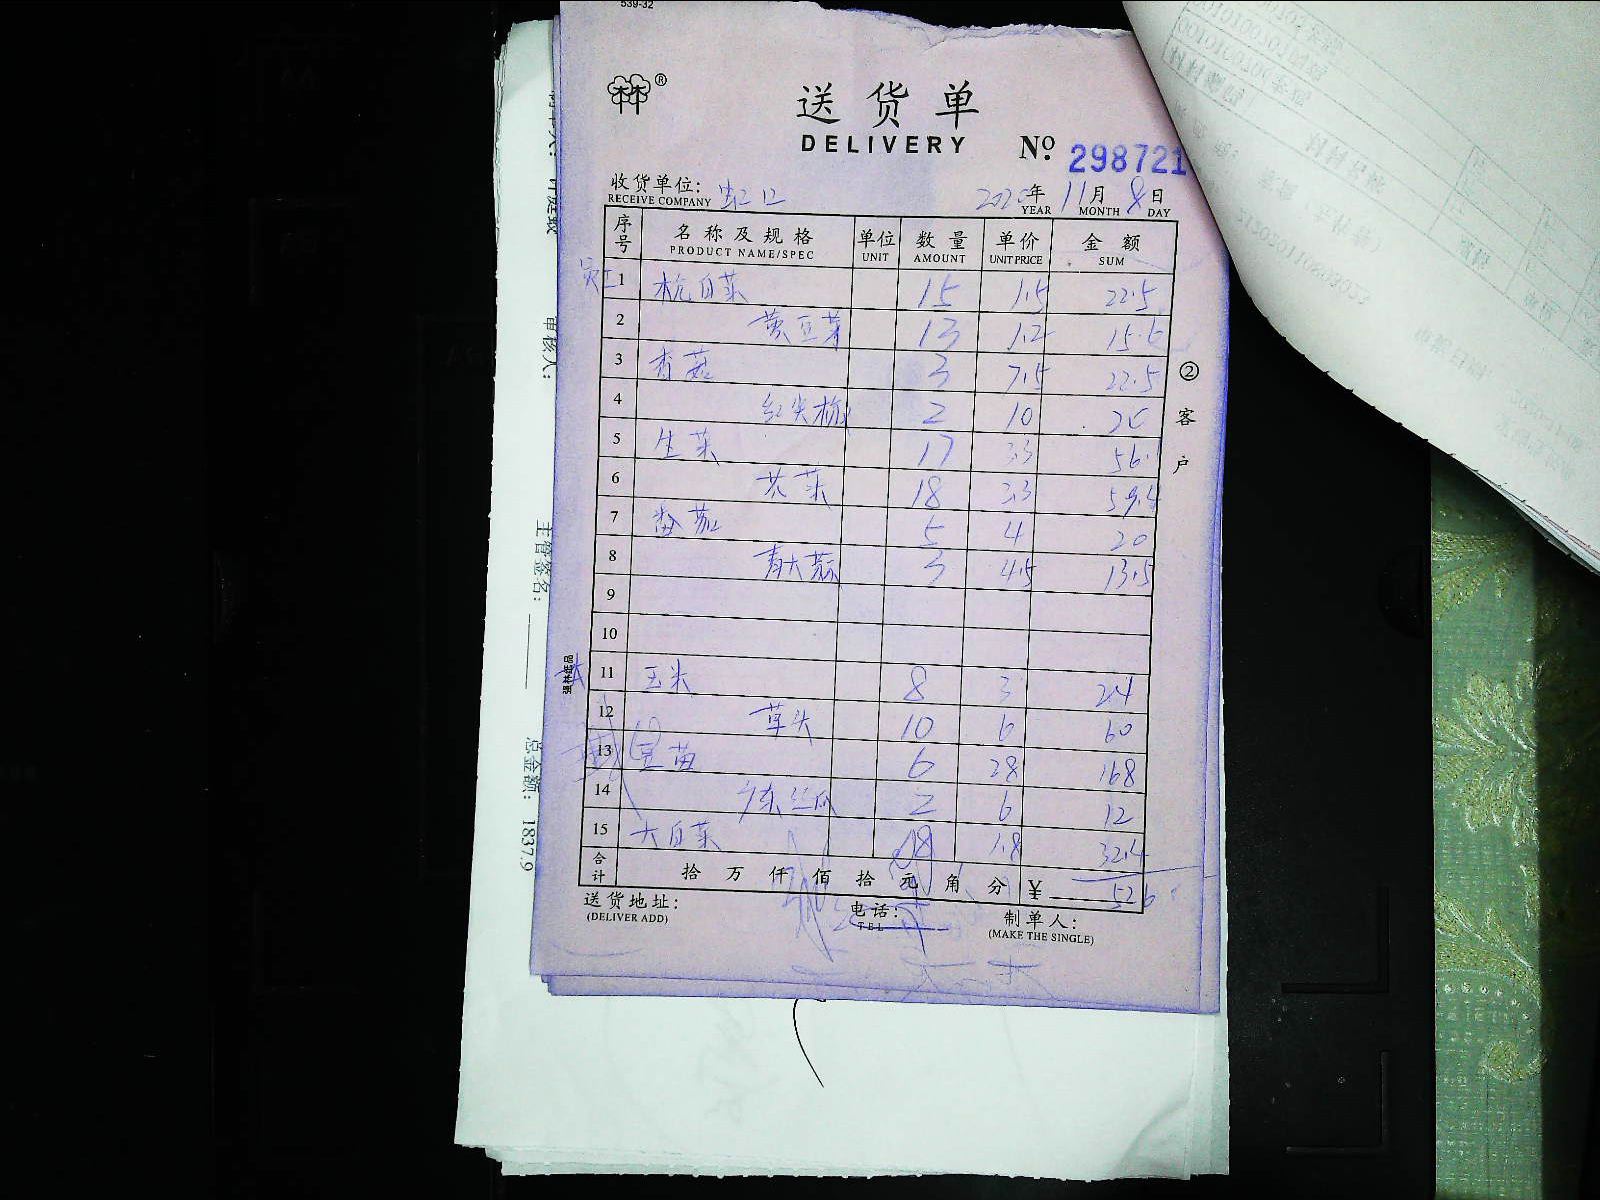 539-32
林®
送货单
DELIVERY
No. 298721
收货单位: 虹口
RECEIVE COMPANY
2020年 11月 8日
YEAR MONTH DAY
序号 名称及规格 单位 数量 单价 金额
PRODUCT NAME/SPEC UNIT AMOUNT UNIT PRICE SUM
1 杭白菜 15 1.5 22.5
2 黄豆芽 13 1.2 15.6
3 香菇 3 7.5 22.5
4 红尖椒 2 10 20
5 生菜 17 3.3 56.1
6 18 3.3 59.4
7 番茄 5 4 20
8 青大蒜 3 4.5 13.5
9
10
11 玉米 8 3 24
12 草头 10 6 60
13 豆苗 6 28 168
14 广东丝瓜 2 6 12
15 大白菜 18 1.8 32.4
合计 拾 万 仟 佰 拾 元 角 分 ¥ 526
送货地址: 电话: 制单人:
(DELIVER ADD) TEL (MAKE THE SINGLE)
② 客户
强林纸品
审核人:
主管签名:
总金额: 1837.9